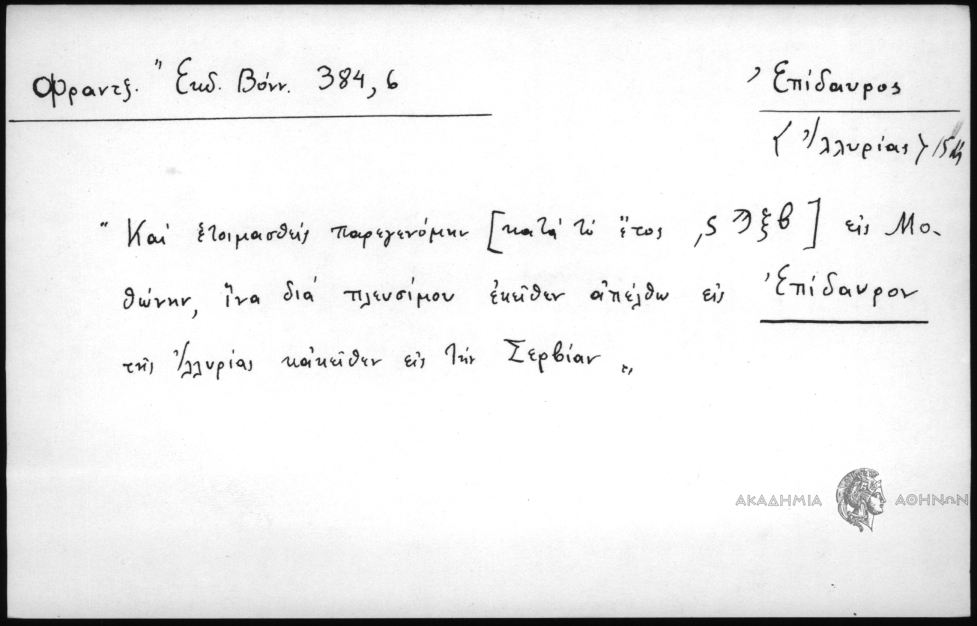 Φραντζ. " Εκδ. Βόνν. 384,6
Ἐπίδαυρος
< Ἰλλυρίας >
" Καὶ ἑτοιμασθεὶς παρεγενόμην [κατὰ τὸ ἔτος ͵ϛϠξβ] εἰς Μο-
θώνην, ἵνα διὰ πλευσίμου ἐκεῖθεν ἀπέλθω εἰς Ἐπίδαυρον
τῆς Ἰλλυρίας κἀκεῖθεν εἰς τὴν Σερβίαν „
ΑΚΑΔΗΜΙΑ ΑΘΗΝΩΝ